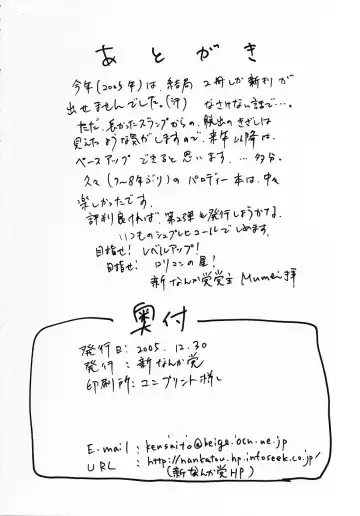 あとがき
今年(2005年)は、結局 2冊しか新刊が
出せませんでした。(汗) なさけない話で…。
ただ、長かったスランプからの、脱出のきざしは
見えたような気がしますので、来年以降は、
ペースアップできると思います。…多分。
久々(7〜8年ぶり)のパロディー本は、中々
楽しかったです。
評判良ければ、第2弾も発行しようかな。
いつものシュプレヒコールでしめます。
目指せ! レベルアップ!
目指せ! ロリコンの星!
新なんか党党主 Mumei拝
奥付
発行日: 2005.12.30
発行: 新なんか党
印刷所: コニプリント様
E-mail: kensaito@beige.ocn.ne.jp
URL: http://nankatou.hp.infoseek.co.jp/
(新なんか党HP)